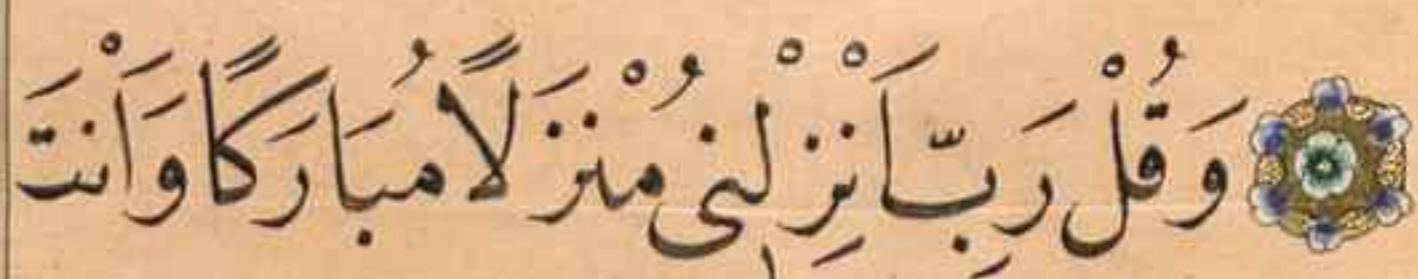 وَقُلْ رَبِّ اَنْزِلْنٖى مُنْزَلًا مُبَارَكًا وَاَنْتَ